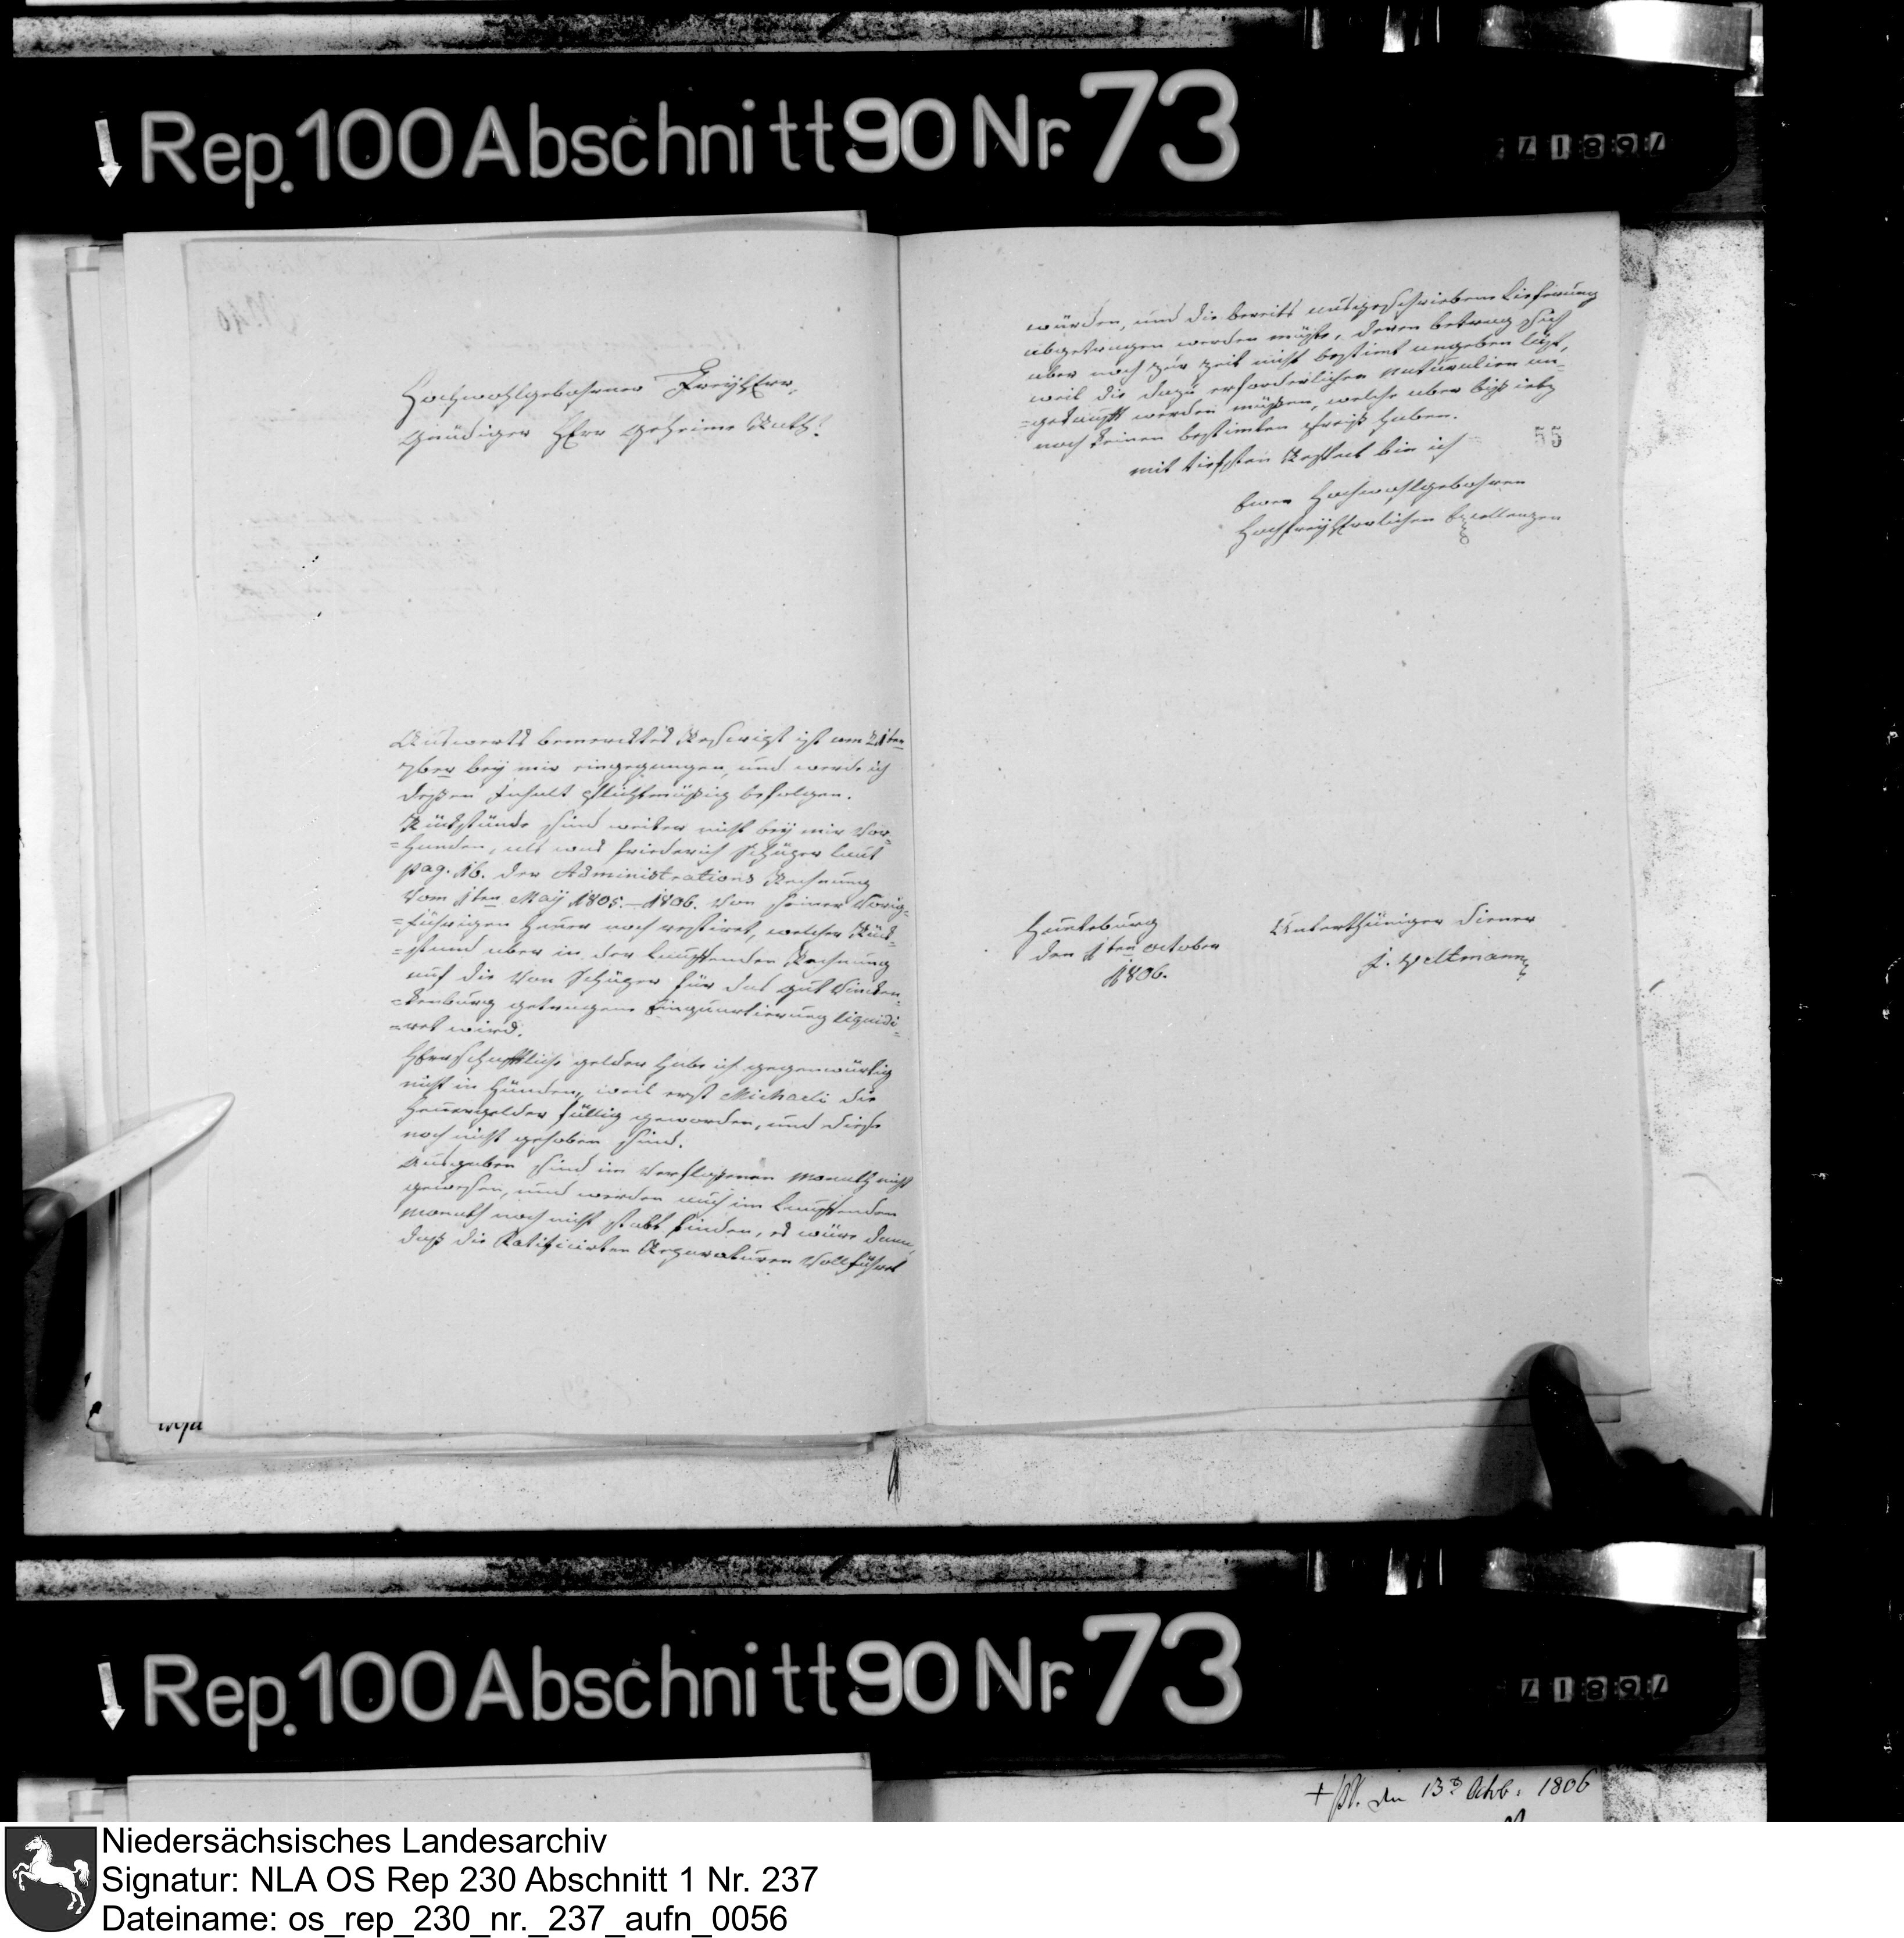 Rep. 100 Abschnitt 90 Nr. 73
Hochwohlgebohrner Freyherr,
Gnädiger Herr Geheime Rath!
Auswerts bemercktes Rescript ist am 21ten
7ber bey mir eingegangen, und werde ich
deßen Inhalt pflichtmäßig befolgen.
Rückstände sind weiter nicht bey mir vor-
=handen, als was Friederich Schäper laut
pag. 16. der Administrations Rechnung
vom 1ten May 1805.–1806. von seiner vorig-
=jährigen Heuer noch restiret, welcher Rück-
=stand aber in der lauffenden Rechnung
auf die von Schäper für das Gut
=kenburg getragene Einquartierung liquidi-
=ret wird.
Herrschaftliche gelder habe ich gegenwärtig
nicht in Händen, weil erst Michaeli die
Heuergelder fällig geworden, und diese
noch nicht gehoben sind.
Ausgaben sind im verfloßenen Monath nicht
gewesen, und werden auch im lauffenden
Monath noch nicht statt finden, es wäre dann,
daß die Ratificirten Reparaturen vollführet
würden, und die bereits ausgeschriebene Lieferung
abgetragen werden müßte, deren betrag sich
aber noch zur zeit nicht bestimt angeben läßt,
weil die dazu erforderlichen Naturalien an-
=gekaufft werden müßen, welche aber biß ietz
noch keinen bestimten Preiß haben.
55
mit tiefsten Respect bin ich
Euer Hochwohlgebohren
Hochfreyherrlichen Excellenzen
Hunteburg
den 1ten October
1806.
Unterthäniger Diener
J. Veltmann
Rep. 100 Abschnitt 90 Nr. 73
den 13 Octob. 1806
Niedersächsisches Landesarchiv
Signatur: NLA OS Rep 230 Abschnitt 1 Nr. 237
Dateiname: os_rep_230_nr._237_aufn_0056